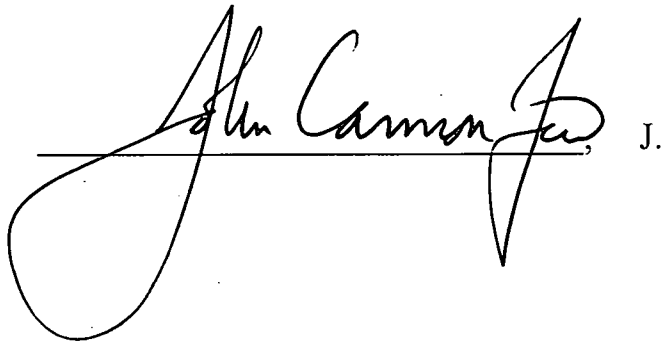 John Cannon Few, J.